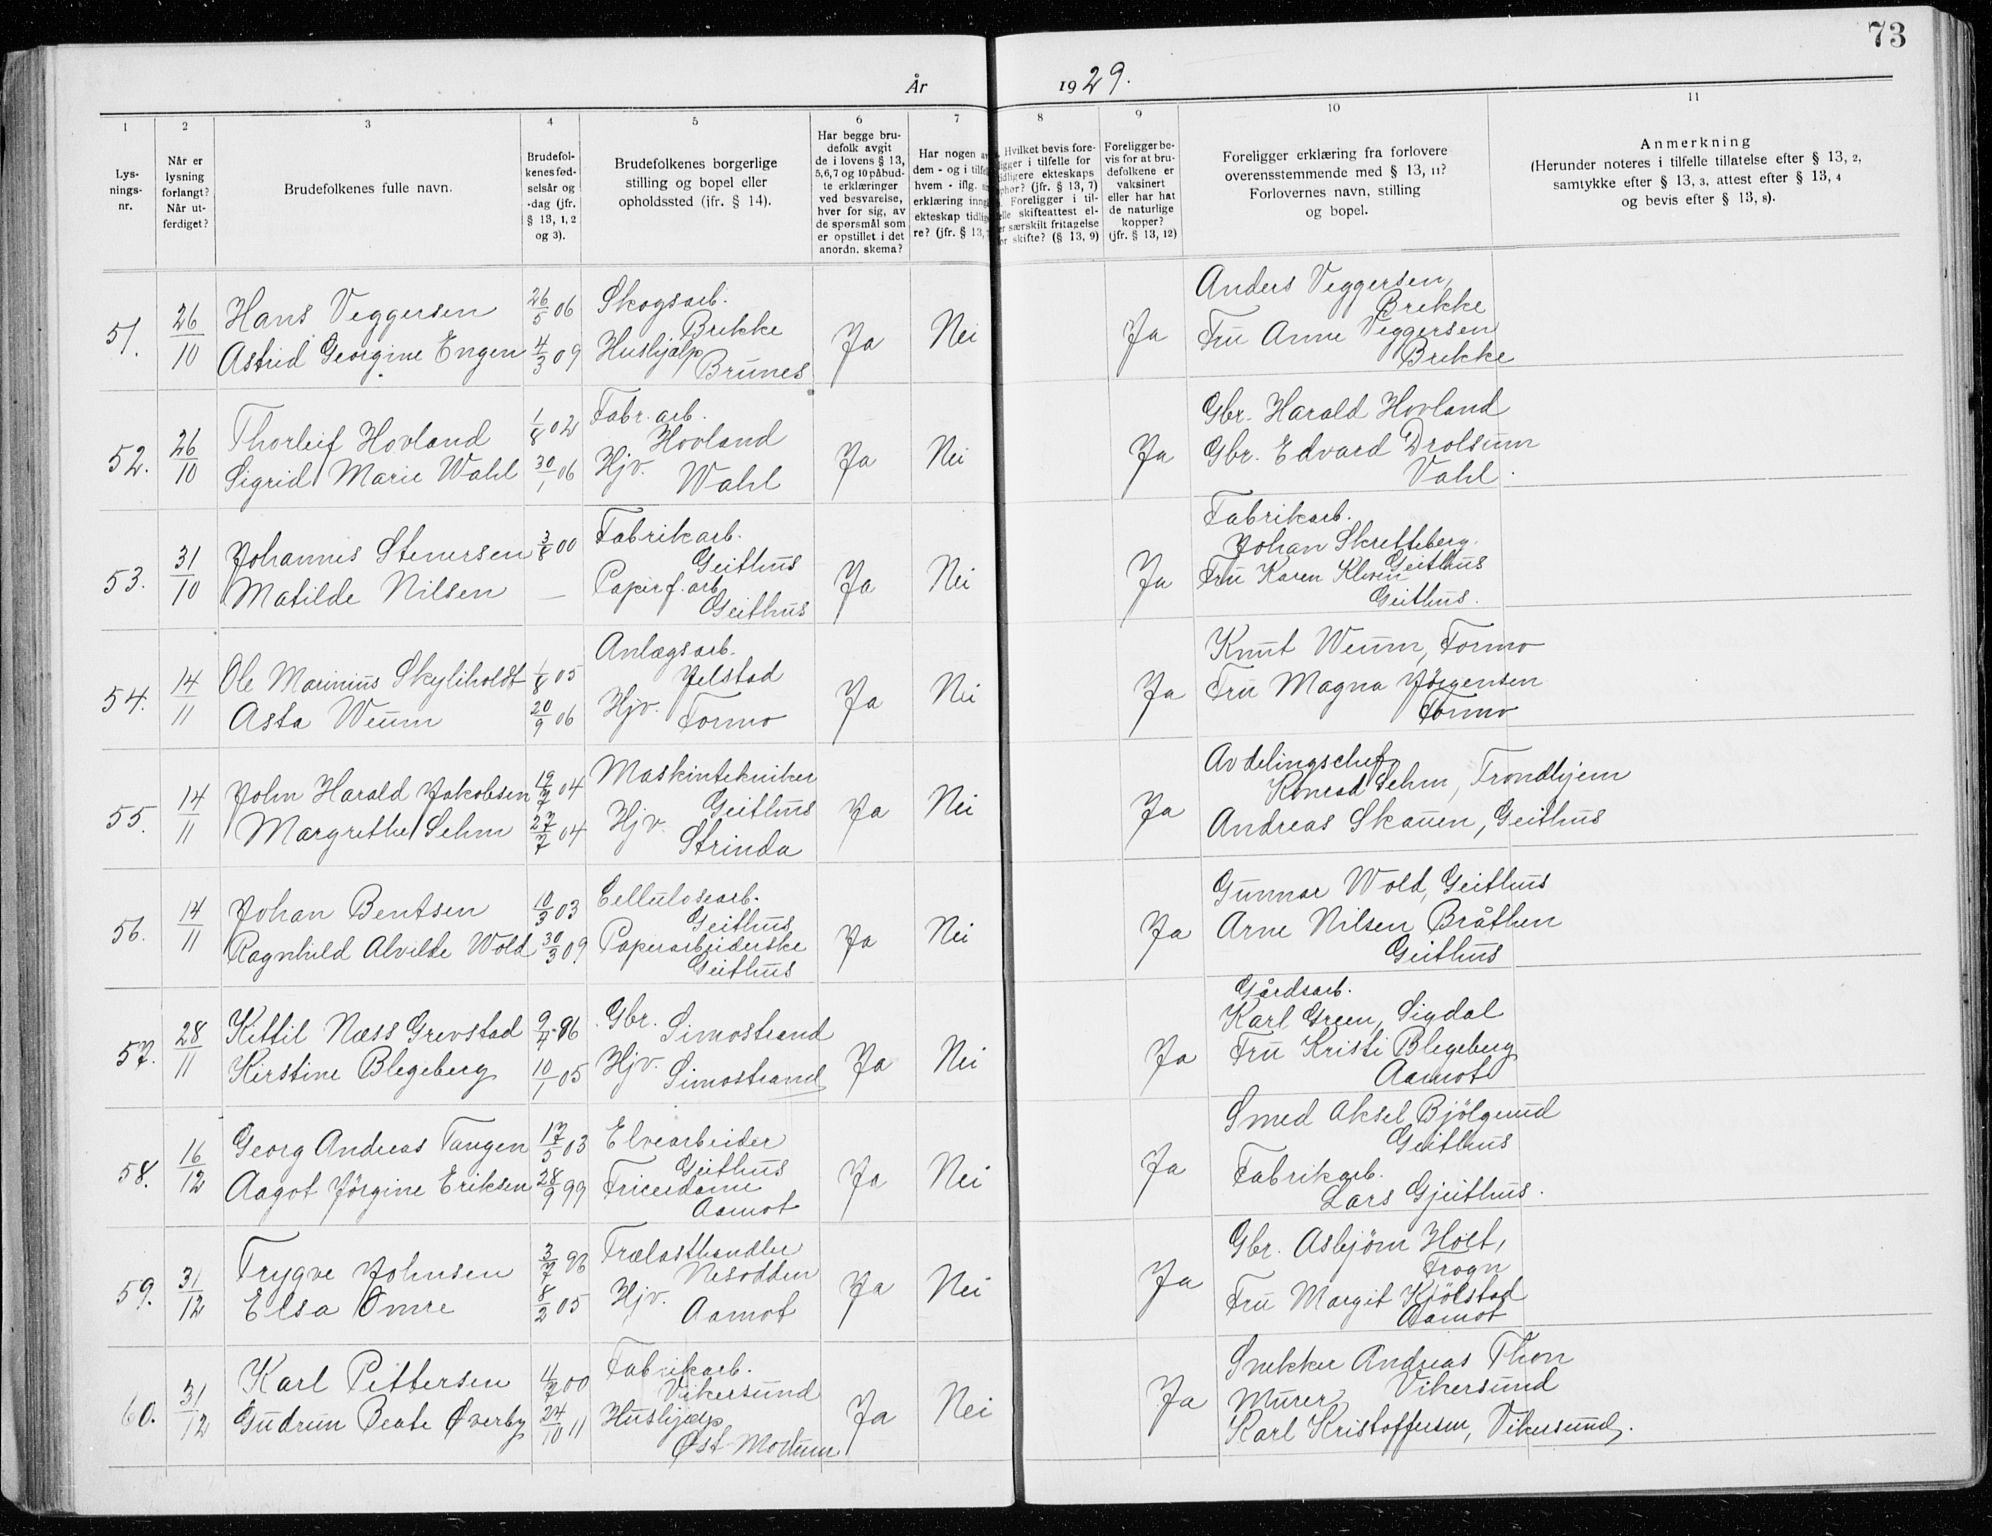 73
År 1929.
1 2 3 4 5 6 7 8 9 10 11
Lys-
nings-
nr.
Når er
lysning
forlangt?
Når ut-
ferdiget?
Brudefolkenes fulle navn.
Brudefol-
kenes fød-
selsår og
-dag (jfr.
§ 13, 1, 2
og 3).
Brudefolkenes borgerlige
stilling og bopel eller
opholdssted (jfr. § 14).
Har begge bru-
defolk avgit
de i lovens § 13,
5,6,7 og 10 påbud-
te erklæringer
ved besvarelse,
hver for sig, av
de spørsmål som
er opstillet i det
anordn. skema?
Har nogen av
dem - og i tilfel
hvem - iflg.
erklæring inng
ekteskap tidlig
re? (jfr. § 13,
Hvilket bevis fore-
ligger i tilfelle for
tidligere ekteskaps
ophør? (jfr. § 13, 7)
Foreligger i til-
felle skifteattest el-
er særskilt fritagelse
for skifte? (§ 13, 9)
Foreligger be-
vis for at bru-
defolkene er
vaksinert
eller har hat
de naturlige
kopper?
(jfr. § 13, 12)
Foreligger erklæring fra forlovere
overensstemmende med § 13, 11?
Forlovernes navn, stilling
og bopel.
Anmerkning
(Herunder noteres i tilfelle tillatelse efter § 13, 2,
samtykke efter § 13, 3, attest efter § 13, 4
og bevis efter § 13, 8).
51. 26/10 Hans Veggersen 26/5 06 Skogsarb.
Brekke
Astrid Georgine Engen 4/3 09 Hushjælp
Brunes
Ja Nei Ja
Anders Veggersen,
Brekke
Fru Anne Veggersen
Brekke
52. 26/10 Thorleif Hovland 1/8 02 Fabr. arb.
Hovland
Sigrid Marie Wahl 30/1 06 Hjv.
Wahl
Ja Nei Ja
Gbr. Harald Hovland
Gbr. Edvard Drolsum
Vahl.
53. 31/10 Johannes Stenersen 3/8 00 Fabrikarb.
Geithus
Matilde Nilsen — Papirf.arb.
Geithus
Ja Nei Ja
Fabrikarb.
Johan Skretteberg.
Geithus
Fru Karen Kleven
Geithus.
54. 14/11 Ole Marinius Skyliholdt 1/8 05 Anlægsarb.
Jelstad
Asta Weum 20/9 06 Hjv. Formo
Ja Nei Ja
Knut Weum, Formo
Fru Magna Jörgensen
Formo
55. 14/11 John Harald Jakobsen 19/7 04 Maskintekniker
Geithus
Margrethe Sehm 27/7 04 Hjv.
Strinda
Ja Nei Ja
Avdelingschef
Konrad Sehm, Trondhjem
Andreas Skauen, Geithus
56. 14/11 Johan Bentsen 10/3 03 Cellulosearb.
Geithus
Ragnhild Alvilde Wold 30/3 09. Papirarbeiderske
Geithus
Ja Nei Ja
Gunnar Wold, Geithus
Arne Nilsen Bråthen
Geithus
57. 28/11 Kittil Næss Grevstad 9/4 96 Gbr. Simostrand
Kirstine Blegeberg 10/1 05 Hjv. Simostrand
Ja Nei Ja
Gårdsarb.
Karl Green, Sigdal
Fru Kristi Blegeberg
Aamot
58. 16/12 Georg Andreas Tangen 17/5 03 Elvearbeider
Geithus
Aagot Jörgine Eriksen 28/9 99 Friserdame
Aamot
Ja Nei Ja
Smed Aksel Bjölgerud
Geithus
Fabrikarb.
Lars Gjeithus.
59. 31/12 Trygve Johnsen 3/7 96 Trælasthandler
Nesodden
Elsa Omre 8/2 05 Hjv.
Aamot
Ja Nei Ja
Gbr. Asbjörn Holt,
Frogn
Fru Margit Kjölstad
Aamot
60. 31/12 Karl Pettersen 4/7 00 Fabrikarb.
Vikersund
Gudrun Beate Øverby 24/10 11 Hushjælp
Øst-Modum
Ja Nei Ja
Snekker Andreas Thon
Vikersund
Murer
Karl Kristoffersen, Vikersund.